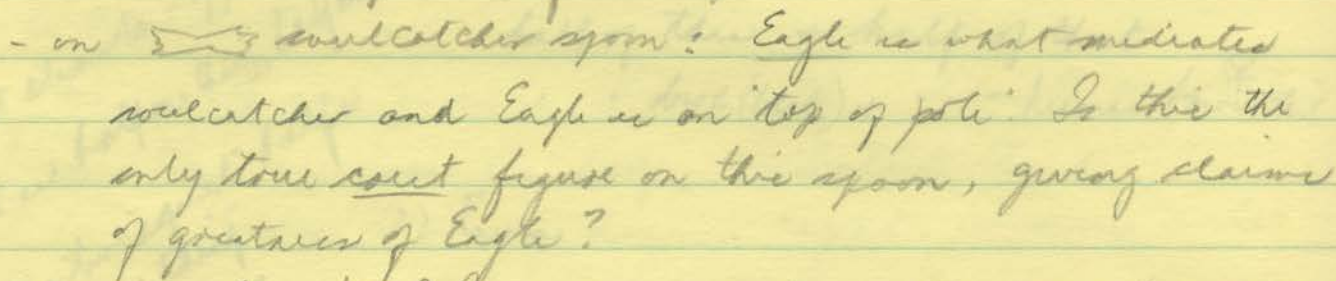 - on soulcatcher spoon: Eagle is what mediates
soulcatcher and Eagle is on "top of pole". Is this the
only true crest figure on this spoon, giving claims
of greatness of Eagle?